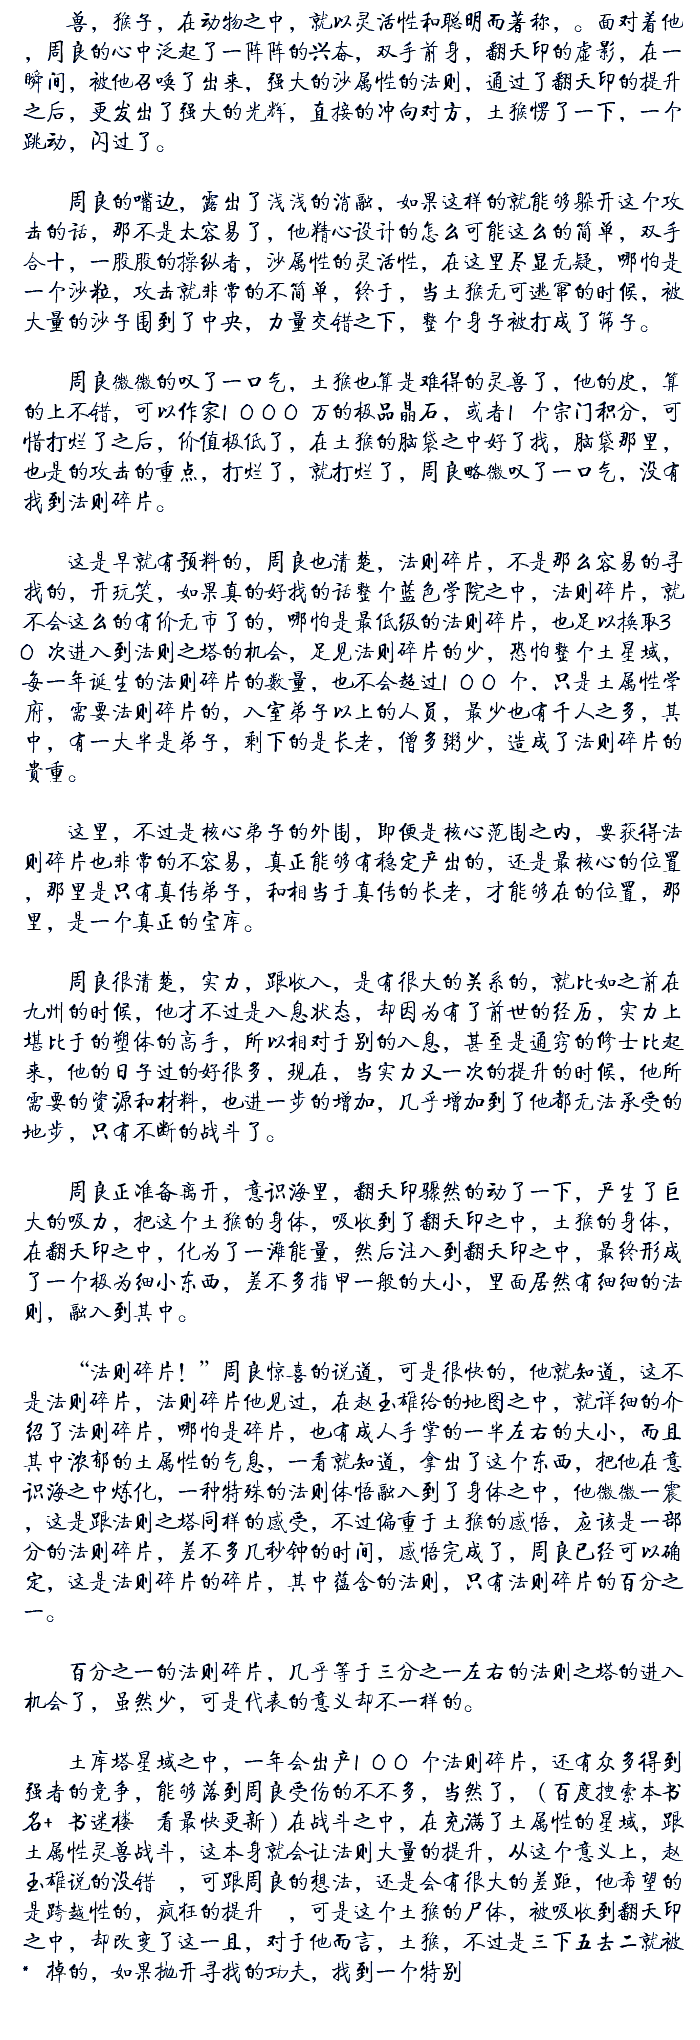 兽，猴子，在动物之中，就以灵活性和聪明而著称，。面对着他
，周良的心中泛起了一阵阵的兴奋，双手前身，翻天印的虚影，在一
瞬间，被他召唤了出来，强大的沙属性的法则，通过了翻天印的提升
之后，更发出了强大的光辉，直接的冲向对方，土猴愣了一下，一个
跳动，闪过了。
周良的嘴边，露出了浅浅的消融，如果这样的就能够躲开这个攻
击的话，那不是太容易了，他精心设计的怎么可能这么的简单，双手
合十，一股股的操纵者，沙属性的灵活性，在这里尽显无疑，哪怕是
一个沙粒，攻击就非常的不简单，终于，当土猴无可逃窜的时候，被
大量的沙子围到了中央，力量交错之下，整个身子被打成了筛子。
周良微微的叹了一口气，土猴也算是难得的灵兽了，他的皮，算
的上不错，可以作家1000 万的极品晶石，或者1 个宗门积分，可
惜打烂了之后，价值极低了，在土猴的脑袋之中好了找，脑袋那里，
也是的攻击的重点，打烂了，就打烂了，周良略微叹了一口气，没有
找到法则碎片。
这是早就有预料的，周良也清楚，法则碎片，不是那么容易的寻
找的，开玩笑，如果真的好找的话整个蓝色学院之中，法则碎片，就
不会这么的有价无市了的，哪怕是最低级的法则碎片，也足以换取3
0 次进入到法则之塔的机会，足见法则碎片的少，恐怕整个土星域，
每一年诞生的法则碎片的数量，也不会超过100 个，只是土属性学
府，需要法则碎片的，入室弟子以上的人员，最少也有千人之多，其
中，有一大半是弟子，剩下的是长老，僧多粥少，造成了法则碎片的
贵重。
这里，不过是核心弟子的外围，即便是核心范围之内，要获得法
则碎片也非常的不容易，真正能够有稳定产出的，还是最核心的位置
，那里是只有真传弟子，和相当于真传的长老，才能够在的位置，那
里，是一个真正的宝库。
周良很清楚，实力，跟收入，是有很大的关系的，就比如之前在
九州的时候，他才不过是入息状态，却因为有了前世的经历，实力上
堪比于的塑体的高手，所以相对于别的入息，甚至是通窍的修士比起
来，他的日子过的好很多，现在，当实力又一次的提升的时候，他所
需要的资源和材料，也进一步的增加，几乎增加到了他都无法承受的
地步，只有不断的战斗了。
周良正准备离开，意识海里，翻天印骤然的动了一下，产生了巨
大的吸力，把这个土猴的身体，吸收到了翻天印之中，土猴的身体，
在翻天印之中，化为了一滩能量，然后注入到翻天印之中，最终形成
了一个极为细小东西，差不多指甲一般的大小，里面居然有细细的法
则，融入到其中。
“法则碎片！”周良惊喜的说道，可是很快的，他就知道，这不
是法则碎片，法则碎片他见过，在赵玉雄给的地图之中，就详细的介
绍了法则碎片，哪怕是碎片，也有成人手掌的一半左右的大小，而且
其中浓郁的土属性的气息，一看就知道，拿出了这个东西，把他在意
识海之中炼化，一种特殊的法则体悟融入到了身体之中，他微微一震
，这是跟法则之塔同样的感受，不过偏重于土猴的感悟，应该是一部
分的法则碎片，差不多几秒钟的时间，感悟完成了，周良已经可以确
定，这是法则碎片的碎片，其中蕴含的法则，只有法则碎片的百分之
一。
百分之一的法则碎片，几乎等于三分之一左右的法则之塔的进入
机会了，虽然少，可是代表的意义却不一样的。
土库塔星域之中，一年会出产100 个法则碎片，还有众多得到
强者的竞争，能够落到周良受伤的不不多，当然了，（百度搜索本书
名+ 书迷楼 看最快更新）在战斗之中，在充满了土属性的星域，跟
土属性灵兽战斗，这本身就会让法则大量的提升，从这个意义上，赵
玉雄说的没错 ，可跟周良的想法，还是会有很大的差距，他希望的
是跨越性的，疯狂的提升 ，可是这个土猴的尸体，被吸收到翻天印
之中，却改变了这一且，对于他而言，土猴，不过是三下五去二就被
* 掉的，如果抛开寻找的功夫，找到一个特别